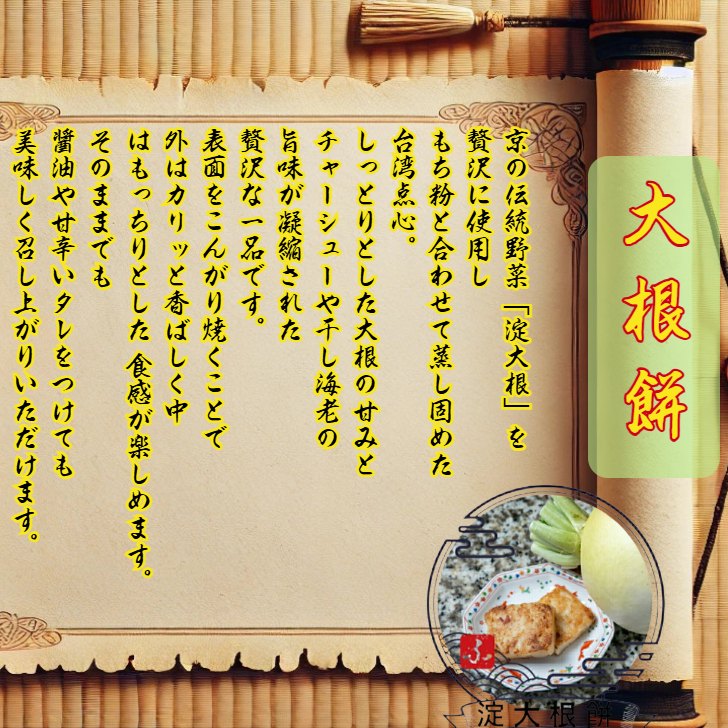 大根餅
京の伝統野菜「淀大根」を
贅沢に使用し
もち粉と合わせて蒸し固めた
台湾点心。
しっとりとした大根の甘みと
チャーシューや干し海老の
旨味が凝縮された
贅沢な一品です。
表面をこんがり焼くことで
外はカリッと香ばしく中
はもっちりとした食感が楽しめます。
そのままでも
醤油や甘辛いタレをつけても
美味しく召し上がりいただけます。
ふ
淀大根餅